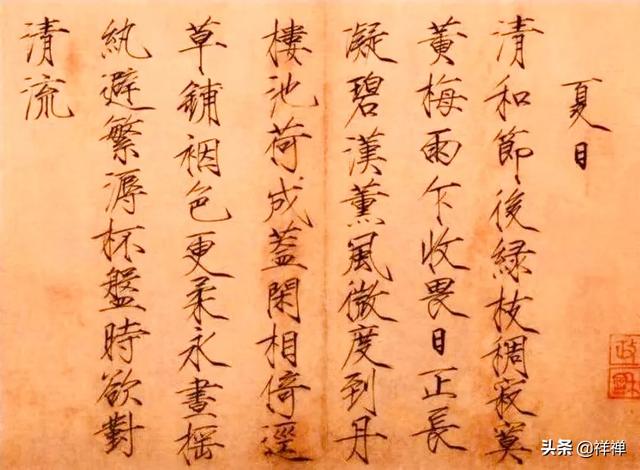 夏日
清和節後緑枝稠寂寞
黃梅雨乍收畏日正長
凝碧漢薰風微度到丹
樓池荷成蓋閑相倚逕
草鋪裀色更柔永晝搖
紈避繁溽杯盤時欲對
清流
政
头条 @祥禅